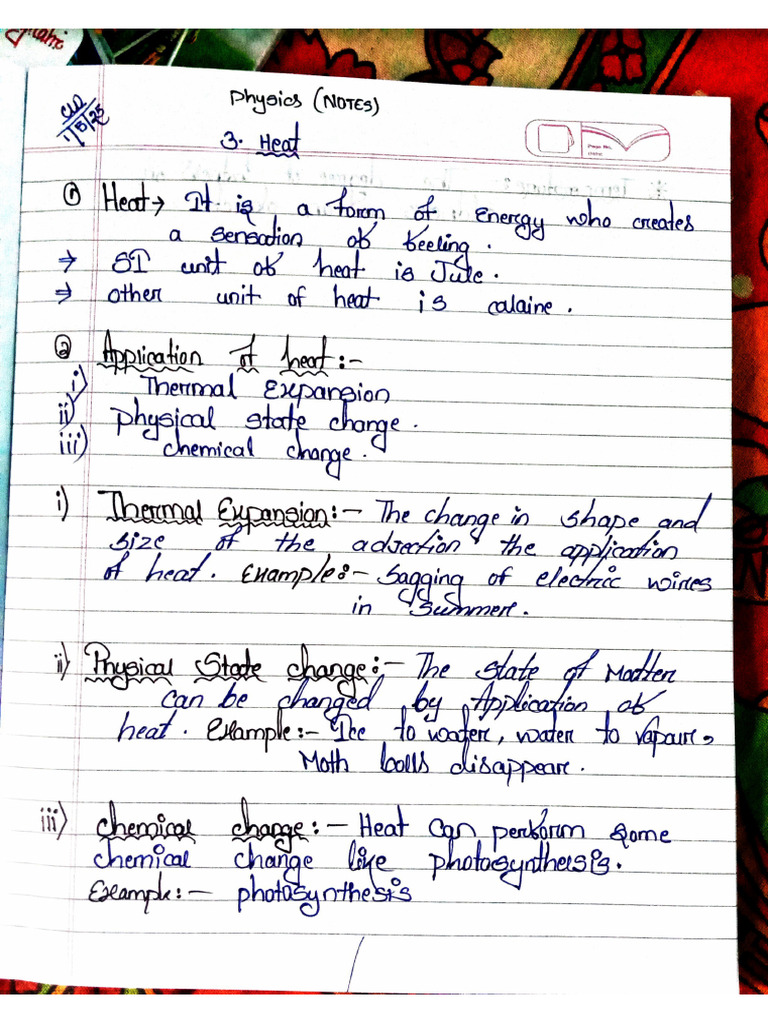 CW
1/5/25
Physics (NOTES)
3. Heat
① Heat → It is a form of Energy who creates
a sensation of feeling.
→ SI unit of heat is Jule.
⇒ other unit of heat is calaine.
② Application of heat :-
i) Thermal Expansion
ii) physical state change.
iii) chemical change.
i) Thermal Expansion :- The change in shape and
size of the adjection the application
of heat. Example :- Sagging of electric wires
in summer.
ii) Physical State change :- The state of Matter
can be changed by Application of
heat. Example :- Ice to water, water to vapour,
Moth balls disappear.
iii) chemical change :- Heat can perform some
chemical change like photosynthersis.
Example :- photosynthesis